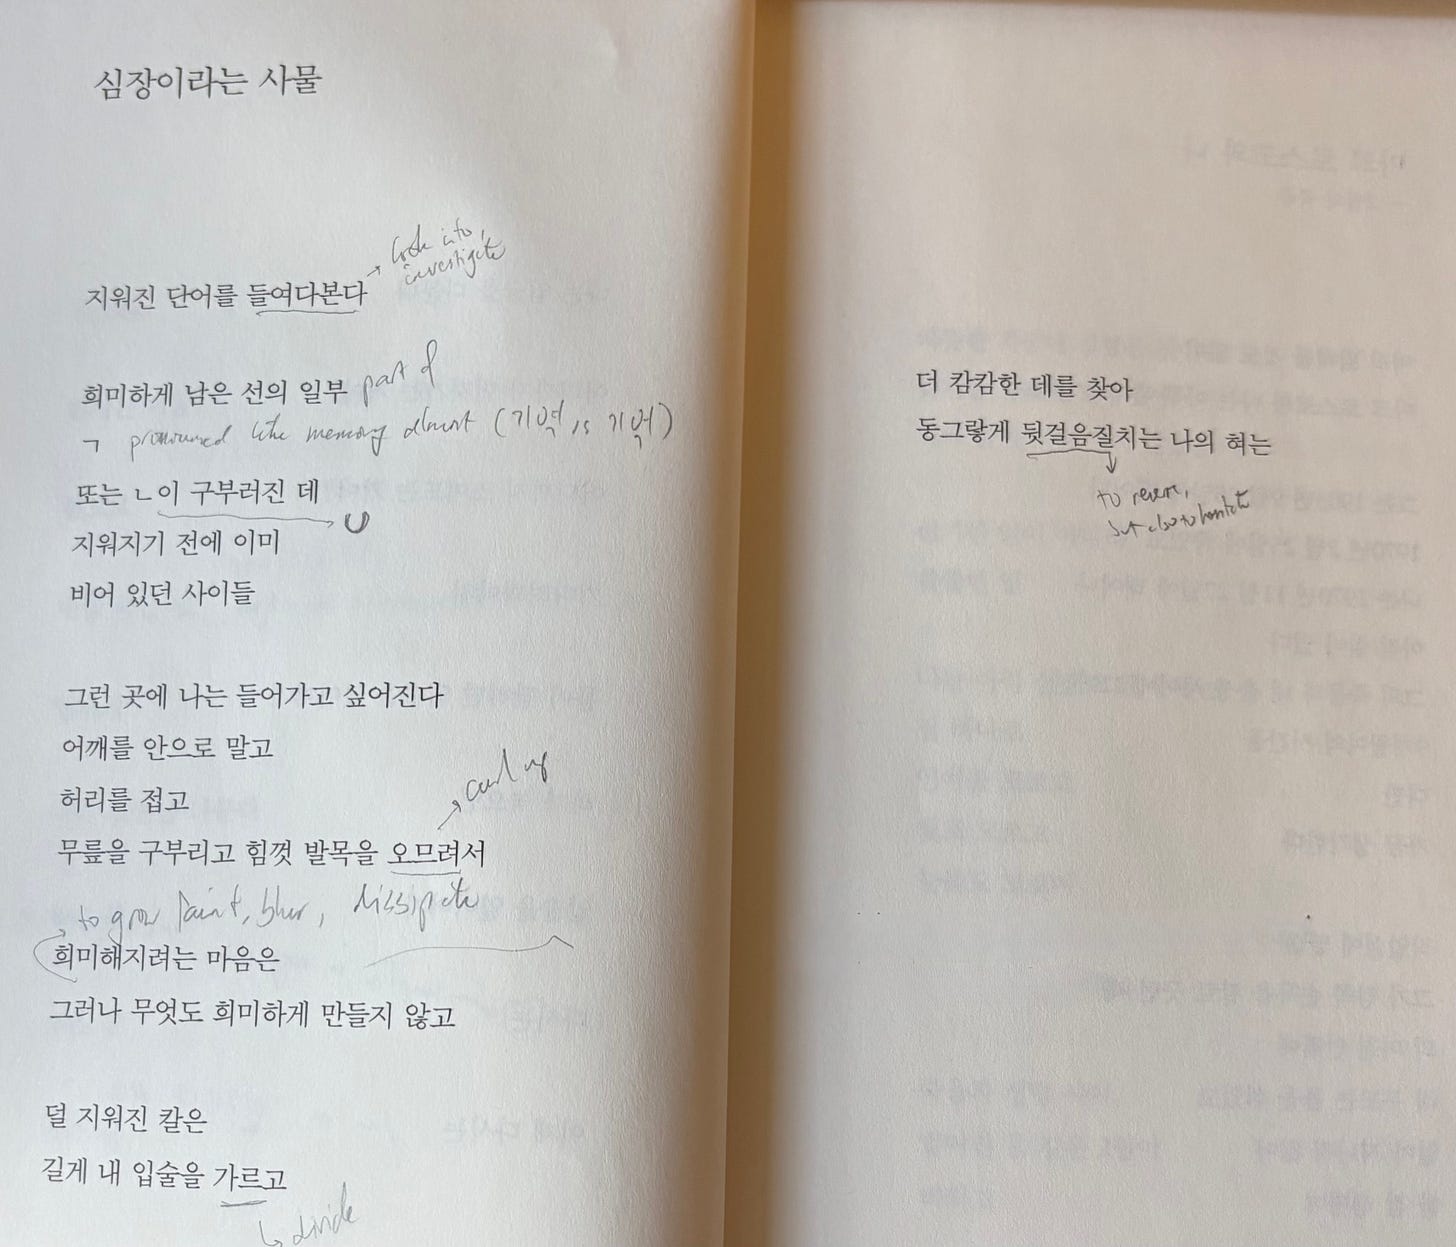 심장이라는 사물
지워진 단어를 들여다본다
look into,
investigate
희미하게 남은 선의 일부 part of
ㄱ pronounced like memory almost (기역 is 기억)
또는 ㄴ이 구부러진 데
지워지기 전에 이미
비어 있던 사이들
그런 곳에 나는 들어가고 싶어진다
어깨를 안으로 말고
허리를 접고
curl up
무릎을 구부리고 힘껏 발목을 오므려서
to grow faint, blur, dissipate
희미해지려는 마음은
그러나 무엇도 희미하게 만들지 않고
덜 지워진 칼은
길게 내 입술을 가르고
divide
더 캄캄한 데를 찾아
동그랗게 뒷걸음질치는 나의 혀는
to reverse,
but also to hesitate